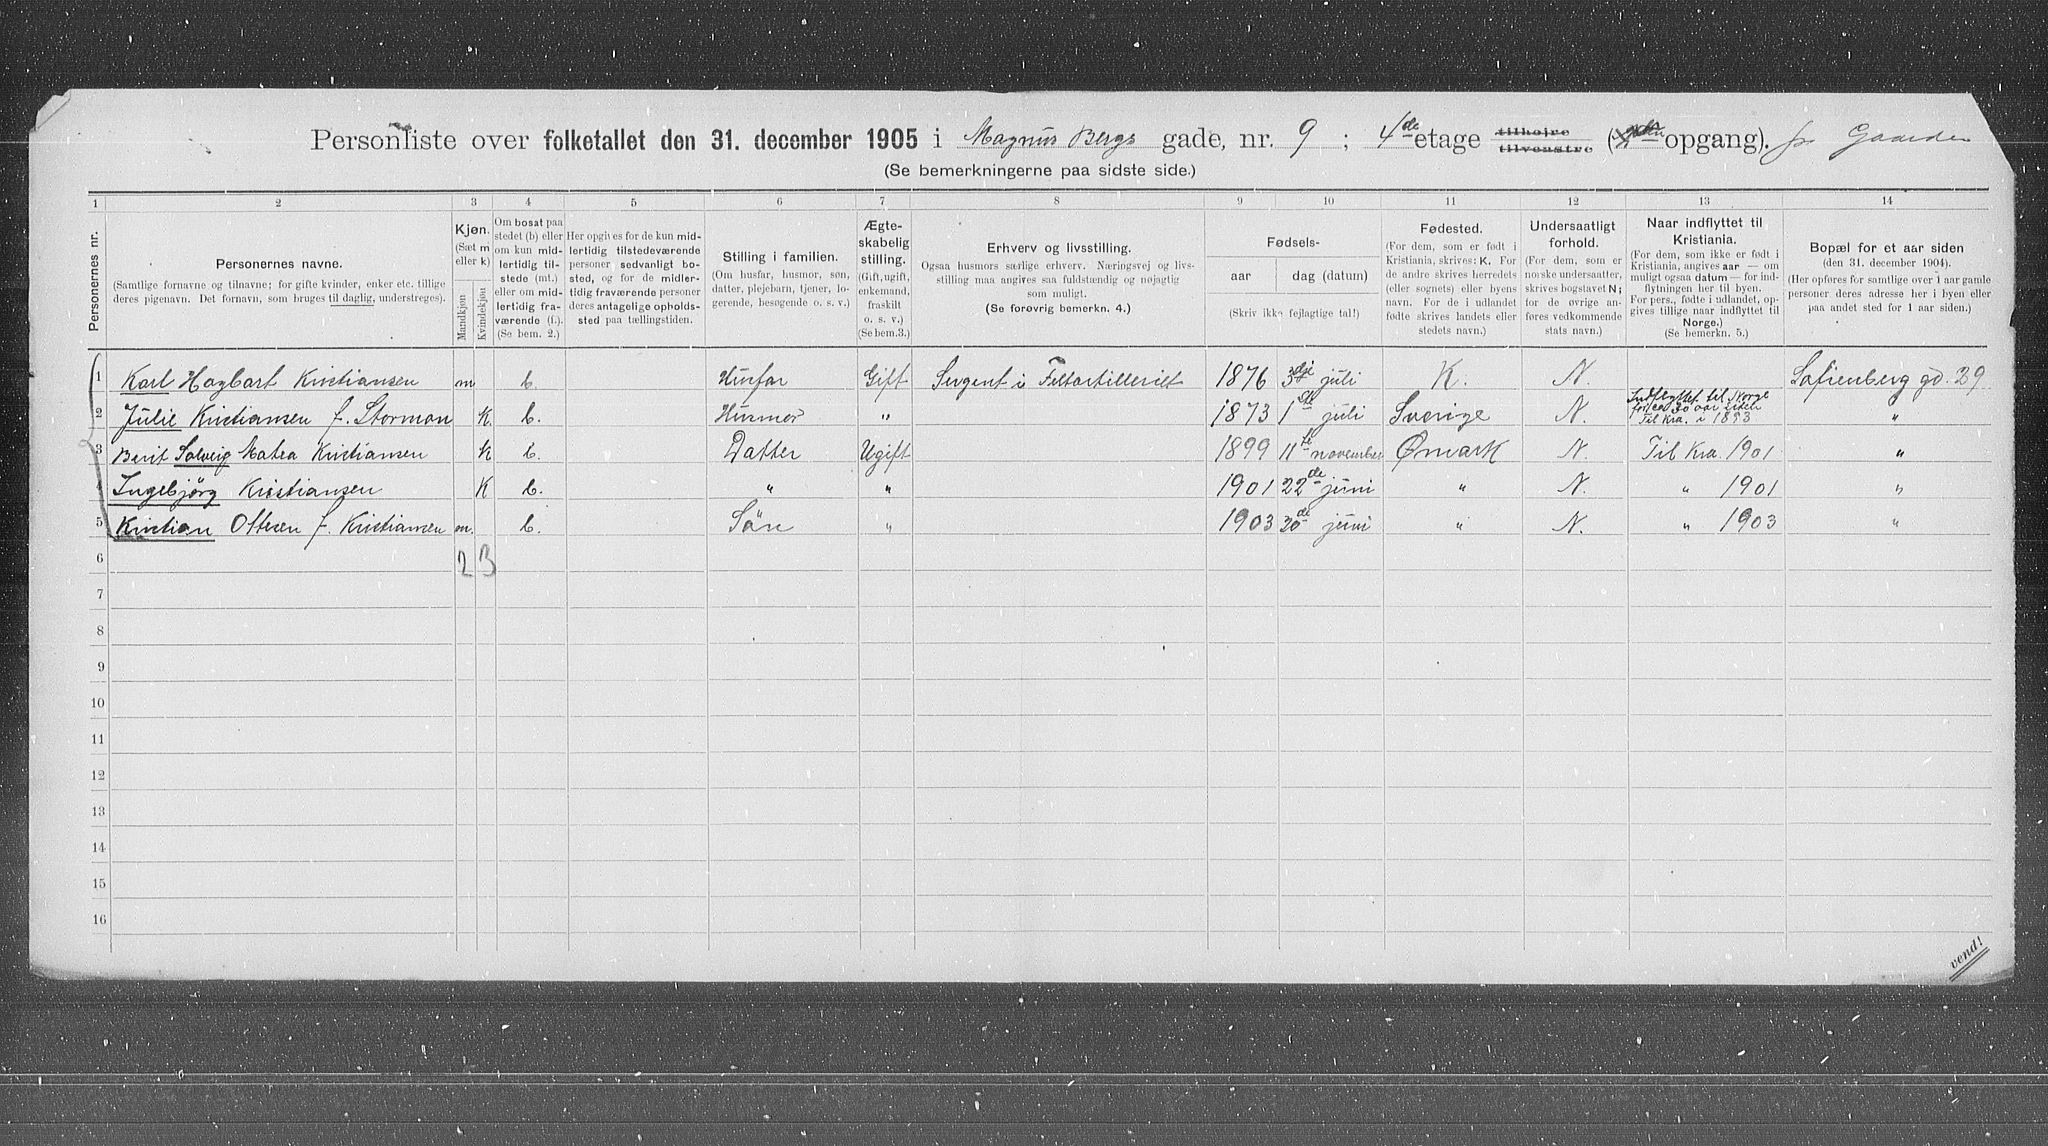 Personliste over folketallet den 31. december 1905 i Magnus Bergs gade, nr. 9 ; 4de etage tilhøjre tilvenstre ( opgang). pr Gaarden
(Se bemerkningerne paa sidste side.)
1 2 3 4 5 6 7 8 9 10 11 12 13 14
Personernes nr.
Personernes navne.
(Samtlige fornavne og tilnavne; for gifte kvinder, enker etc. tillige
deres pigenavn. Det fornavn, som bruges til daglig, understreges).
Kjøn.
(Sæt m
eller k)
Mandkjøn
Kvindekjøn
Om bosat paa
stedet (b) eller
om kun mid-
lertidig til-
stede (mt.)
eller om mid-
lertidig fra-
værende (f.).
(Se bem. 2.)
Her opgives for de kun mid-
lertidig tilstedeværende
personer sedvanligt bo-
sted, og for de midler-
tidig fraværende personer
deres antagelige opholds-
sted paa tællingstiden.
Stilling i familien.
(Om husfar, husmor, søn,
datter, plejebarn, tjener, lo-
gerende, besøgende o. s. v.)
Ægte-
skabelig
stilling.
(Gift, ugift,
enkemand,
fraskilt
o. s. v.)
(Se bem.3.)
Erhverv og livsstilling.
Ogsaa husmors særlige erhverv. Næringsvej og livs-
stilling maa angives saa fuldstændig og nøjagtig
som muligt.
(Se forøvrig bemerkn. 4.)
Fødsels-
aar dag (datum)
(Skriv ikke fejlagtige tal!)
Fødested.
(For dem, som er født i
Kristiania, skrives: K. For
de andre skrives herredets
(eller sognets) eller byens
navn. For de i udlandet
fødte skrives landets eller
stedets navn.)
Undersaatligt
forhold.
(For dem, som er
norske undersaatter,
skrives bogstavet N;
for de øvrige an-
føres vedkommende
stats navn.)
Naar indflyttet til
Kristiania.
(For dem, som ikke er født i
Kristiania, angives aar — om
muligt ogsaa datum — for ind-
flytningen her til byen.
For pers., fødte i udlandet, op-
gives tillige naar indflyttet til
Norge.)
(Se bemerkn. 5.)
Bopæl for et aar siden
(den 31. december 1904).
(Her opføres for samtlige over 1 aar gamle
personer deres adresse her i byen eller
paa andet sted for 1 aar siden.)
1 Karl Hagbart Kristiansen m b. Husfar Gift Sergent i Feltartilleriet 1876 3dje juli K. N. Sofienberg gd. 29
2 Julie Kristiansen f. Storman K. b. Husmor " 1873 1ste juli Sverige N. Indflyttet til Norge for ca 30 aar siden Til Kra. i 1893 "
3 Berit Solveig Matea Kristiansen K b. Datter Ugift 1899 11te november Ømark N. Til Kra. 1901 "
4 Ingebjörg Kristiansen K b. " " 1901 22de juni " N. " 1901 "
5 Kristian Ottesen f. Kristiansen m. b. Sön " 1903 30de juni " N. " 1903 "
6 2 3
7
8
9
10
11
12
13
14
15
16
vend!